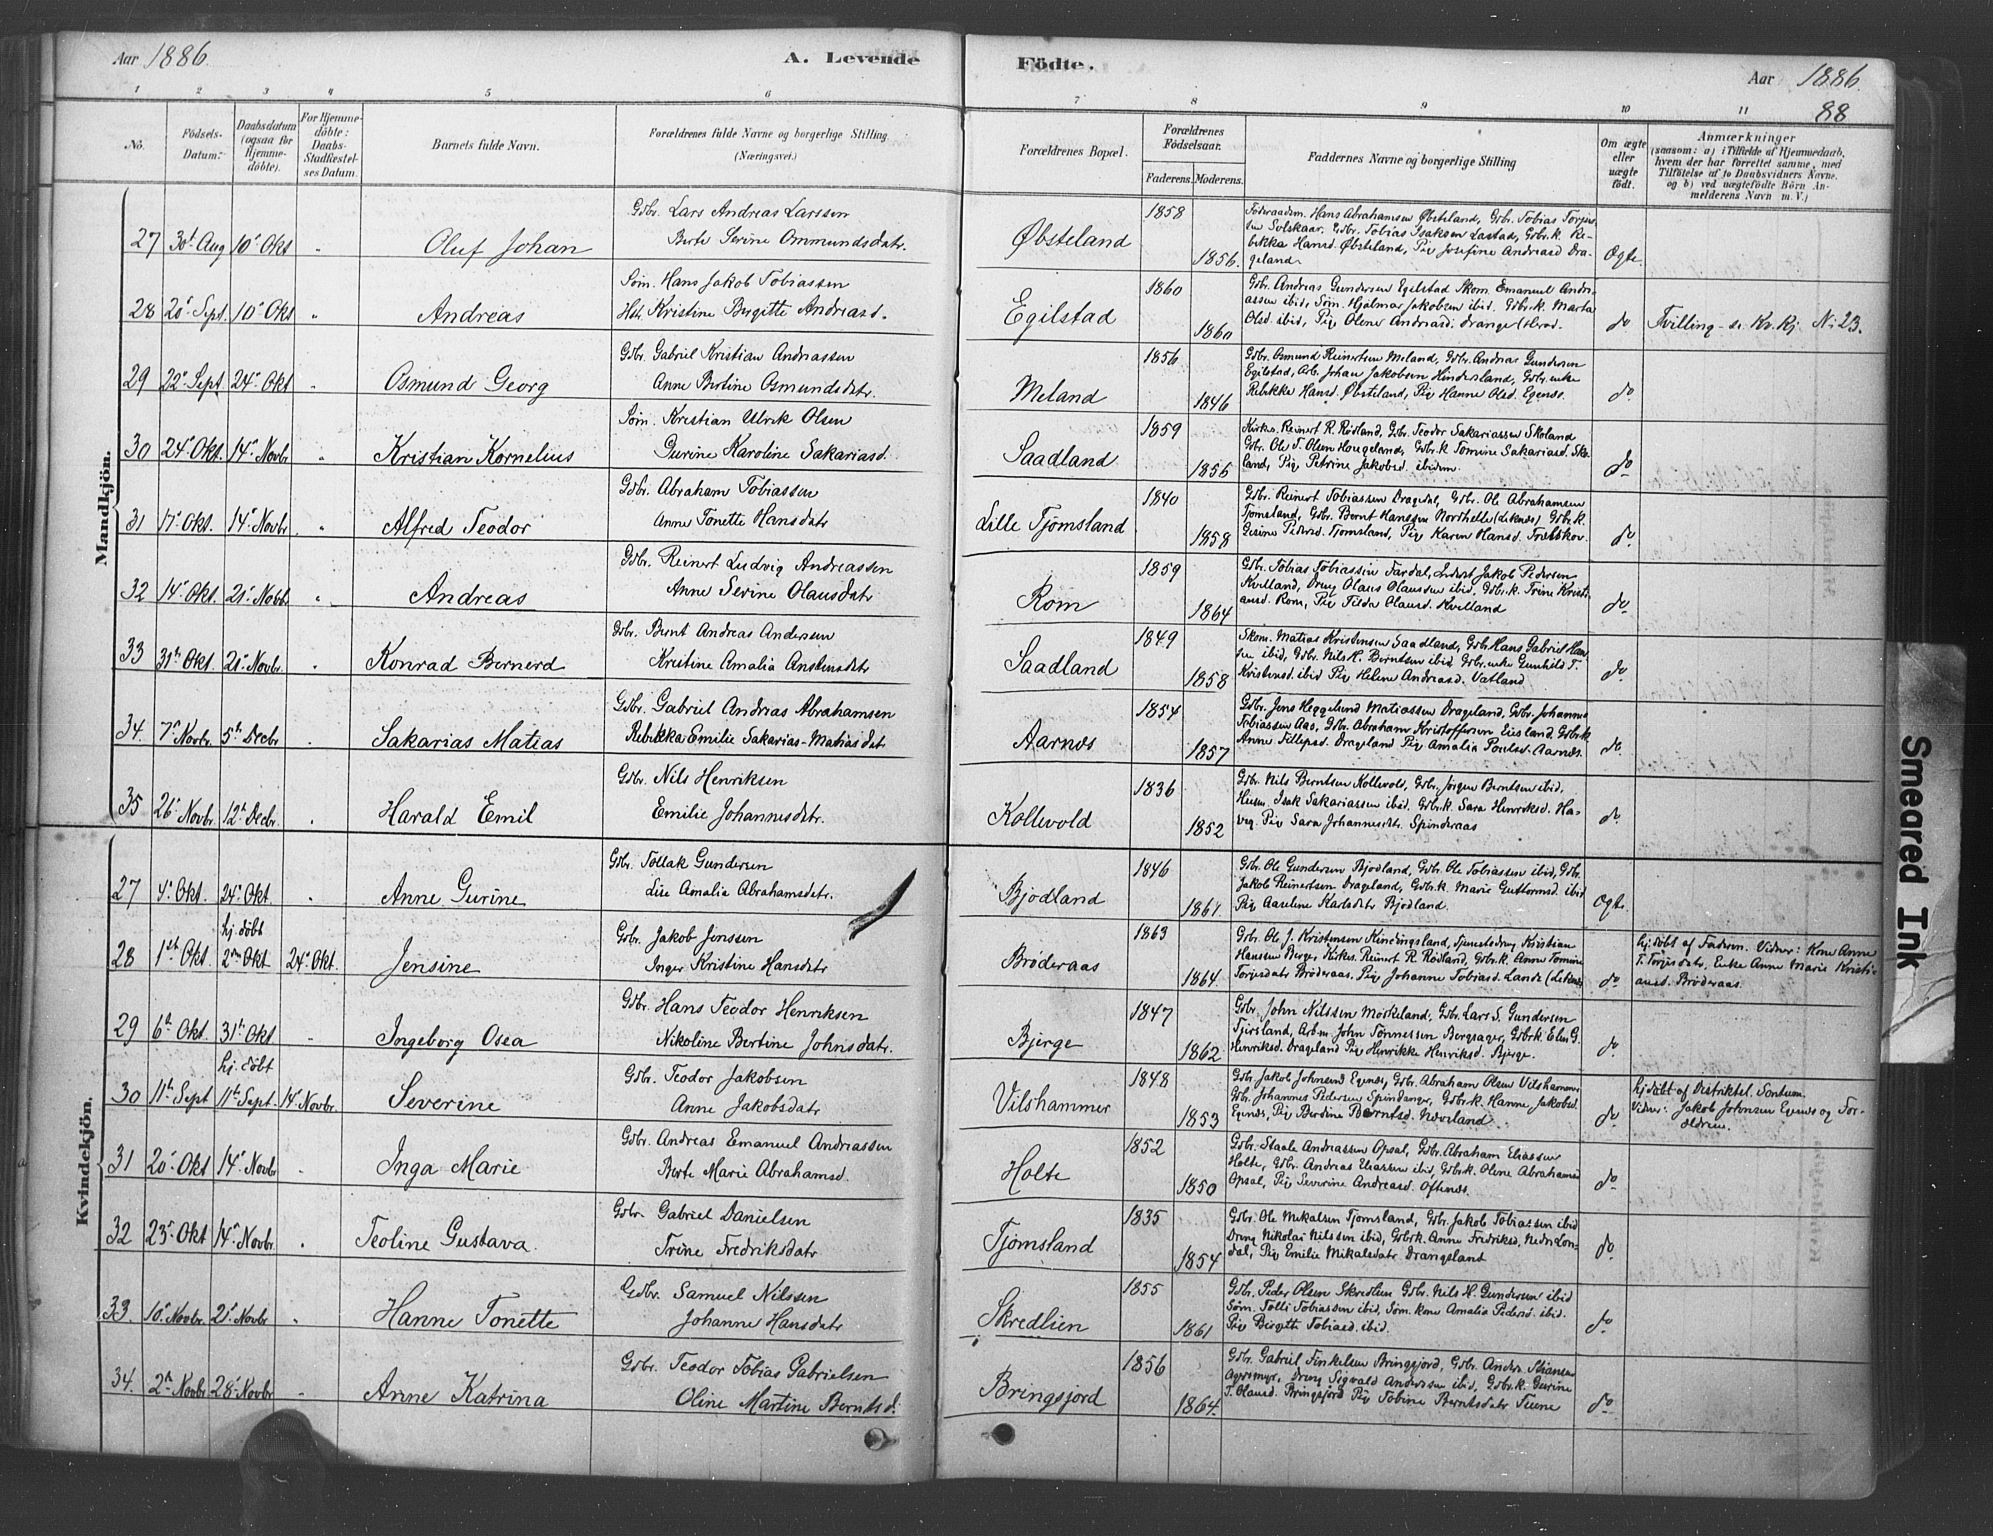 Aar 1886
A. Levende Födte.
Aar 1886
88
1 2 3 4 5 6 7 8 9 10 11
No.
Födsels-Datum:
Daabsdatum (ogsaa for Hjemme-döbte).
For Hjemme-döbte: Daabs-Stadfæstel-ses Datum.
Barnets fulde Navn.
Forældrenes fulde Navne og borgerlige Stilling
(Næringsvei.)
Forældrenes Bopæl.
Forældrenes Födselsaar.
Faderens. Moderens.
Faddernes Navne og borgerlige Stilling
Om ægte eller uægte födt.
Anmærkninger
(saasom: a) i Tilfælde af Hjemmedaab,
hvem der har forrettet samme, med
Tilföielse af to Daabsvidners Navne,
og b) ved uægtefödte Börn An-
melderens Navn m. V.)
Mandkjön.
27 30t Aug 10' Okt " Oluf Johan
Gbr. Lars Andreas Larssen
Berte Serine Ommundsdatr.
Øbsteland 1858 1856.
Föderaadsm. Hans Abrahamsen Øbsteland, Gbr. Tobias Torjus-
sen Solskaar, Gbr. Tobias Isaksen Lastad, Gbr.k. Re-
bekka Hansd. Øbsteland, Pig Josefine Andreasd Dra-
geland.
Ægte.
28 20' Sept. 10' Okt " Andreas
Søm. Hans Jakob Tobiassen
Hst. Kristine Birgitte Andreasd.
Egilstad 1860 1860
Gbr. Andreas Gundersen Egilstad Skom. Emanuel Andre-
assen ibid, Søm. Hjalmar Jakobsen ibid. Gbr.k. Marta
Olsd. ibid, Pig Olene Andreasd. Drange (Herad.
do Tvilling - se Kv.Kj. N: 23.
29 22' Sept 24' Okt " Osmund Georg
Gbr. Gabriel Kristian Andreassen
Anne Bertine Osmundsdatr.
Meland 1856 1846
Gbr. Osmund Reinertsen Meland, Gbr. Andreas Gundersen
Egilstad, Arb. Johan Jakobsen Hindersland, Gbr.enke
Rebekke Hansd. Øbsteland, Pig Hanne Olsd. Egenæs.
do
30 24' Okt. 14' Novbr " Kristian Kornelius
Søm. Kristian Ulrik Olsen
Gurine Karoline Sakariasd.
Saadland 1859 1856
Kirkes. Reinert R. Rødland, Gbr. Teodor Sakariassen Skoland
Gbr. Ole T. Olsen Haugeland, Gbr.k Tomine Sakariasd. Sko-
land, Pig Petrine Jakobsd ibidem.
do
31 17' Okt. 14' Novbr. " Alfred Teodor
Gbr. Abraham Tobiassen
Anne Tonette Hansdatr
Lille Tjomsland 1840 1858
Gbr. Reinert Tobiassen Dragedal, Gbr. Ole Abrahamsen
Tjomsland, Gbr. Bernt Hanssen Nordhelle (Leknes) Gbr.k.
Gesine Pedersd. Tjomsland, Pig Karen Hansd.
do
32 14' Okt. 21' Novbr. " Andreas
Gbr. Reinert Ludvig Andreassen
Anne Serine Olausdatr
Rom 1859 1864
Gbr. Tobias Tobiassen Fardal, Jakob Pedersen
Kvelland, Dreng Olaus Olaussen ibid, Gbr.k. Trine Kristi-
ansd. Rom, Pig Tilda Olausd. Kvelland
do
33 31th Okt. 21' Novbr. " Konrad Bernerd
Gbr. Bernt Andreas Andersen
Kristine Amalia Anstensdatr
Saadland 1849 1858
Skom. Matias Kristensen Saadland, Gbr. Hans Gabriel Han-
sen ibid, Gbr. Nils H. Berntsen ibid, Gbr.enke Gunhild T.
Kristensd. ibid Pig Helene Andreasd. Vatland
do
34. 7' Novbr. 5th Decbr " Sakarias Matias
Gbr. Gabriel Andreas Abrahamsen
Rebekka Emilie Sakarias-Matiasdatr
Aarnes 1854 1857
Gbr. Jens Heggelund Matiassen Drageland, Gbr. Johannes
Tobiassen Aas, Gbr. Abraham Kristoffersen Eiesland, Gbr.k
Anne Tillepsd. Drageland Pig Amalia Poulsd. Aarnes.
do
35 26' Novbr. 12th Decbr. " Harald Emil
Gbr. Nils Henriksen
Emilie Johannesdatr.
Kollevold 1836 1852
Gbr. Nils Berntsen Kollevold, Gbr. Jørgen Berntsen ibid,
Husm. Isak Sakariassen ibid. Gbr.k. Sara Henriksd. Ha-
veg. Pig Sara Johannesdtr. Spinderaas
do
Kvindekjön.
27 4' Okt. 24' Okt " Anne Gurine
Gbr. Tollak Gundersen
Lise Amalia Abrahamsdatr.
Bjodland 1846 1861
Gbr. Ole Gundersen Bjodland, Gbr. Ole Tobiassen ibid, Gbr.
Jakob Reinertsen Drageland, Gbr.k. Marie Guttormsd. ibid
Pig Aaseline Karlsdatr Bjodland.
Ægte.
28 1st Okt hj. döbt 2den Okt 24' Okt. Jensine
Gbr. Jakob Jenssen
Inger Kristine Hansdatr
Brøderaas 1863 1864
Gbr. Ole J. Kristensen Kindingsland, Tjenestedreng Kristian
Hanssen Berge, Kirkes. Reinert R. Rødland, Gbr.k. Anne Tomine
Torjesdatr Brøderaas. Pig Johanne Tobiasd. Lande (Leknes)
do
hj. döbt af Faderen. Vidner: Kone Anne
T. Torjesdatr, Enke Anne Marie Kristi-
ansd. Brøderaas.
29 6th Okt 31th Okt " Ingeborg Osea
Gbr. Hans Teodor Henriksen
Nikoline Bertine Johnsdatr.
Bjerge 1847 1862
Gbr. John Nilssen Moskeland, Gbr. Lars S. Gundersen
Tjersland, Arb.m John Tønnessen Bergsager, Gbr.k Elen G.
Henriksd. Drageland Pig Henrikke Henriksd. Bjerge.
do
30 11th Sept hj. döbt 11th Sept. 14' Novbr. Severine
Gbr. Teodor Jakobsen
Anne Jakobsdatr
Vilshammer 1848 1853
Gbr. Jakob Johnsen Egenæs, Gbr. Abraham Olsen Vilshammer
Gbr. Johannes Pedersen Spindanger, Gbr.k. Hanne Jakobsd.
Egenæs, Pig Berdine Berntsd. Neveland
do
hj. döbt af Distriktsl. Sontum.
Vidner: Jakob Johnsen Egenes og For-
ældrene.
31 20' Okt 14' Novbr " Inga Marie
Gbr. Andreas Emanuel Andreassen
Berte Marie Abrahamsd.
Holte 1852 1850
Gbr. Staale Andreassen Opsal, Gbr. Abraham Eliassen
Holte, Gbr. Andreas Eliassen ibid, Gbr.k. Olene Abrahamsd
Opsal, Pig Severine Andreasd. Oftenæs.
do
32 23' Okt 14' Novbr. " Teoline Gustava.
Gbr. Gabriel Danielsen
Trine Fredriksdatr
Tjomsland 1835 1854
Gbr. Ole Mekalsen Tjomsland, Gbr. Jakob Tobiassen ibid
Dreng Nikolai Nilssen ibid, Gbr.k. Anne Fredriksd. Nedr. Lon-
dal, Pig Emilie Mikalsdatr Drangsland
do
33. 10' Novbr. 21' Novbr " Hanne Tonette
Gbr. Samuel Nilssen
Johanne Hansdatr
Skredlien 1855 1861
Gbr. Peder Olsen Skredlien Gbr. Nils N. Gundersen ibid
Søm. Tolli Tobiassen ibid, Søm.kone Amalia Pedersd. ibid.
Pig Birgitte Tobiasd. ibid.
do
34. 2n Novbr 28' Novbr " Anne Katrina
Gbr. Teodor Tobias Gabrielsen
Oline Martine Berntsd.
Bringsjord 1856 1864.
Gbr. Gabriel Finkelsen Bringsjord, Gbr. Anders Stiansen
Agersmyr, Dreng Sigvald Andersen ibid, Gbr.k. Gurine
T. Olausd. Bringsjord Pig Tobine Berntsdatr
do
Smeared Ink